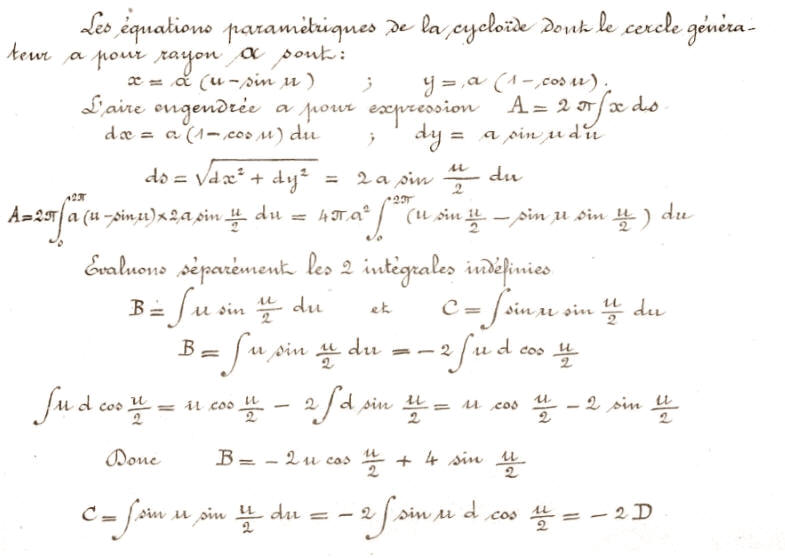 Les équations paramétriques de la cycloïde dont le cercle généra-
teur a pour rayon a sont :
x = a (u - sin u) ; y = a (1 - cos u).
L'aire engendrée a pour expression A = 2π∫x ds
dx = a (1 - cos u) du ; dy = a sin u du
ds = √(dx² + dy²) = 2a sin u/2 du
A = 2π∫₀^2π a (u - sin u) × 2a sin u/2 du = 4πa² ∫₀^2π (u sin u/2 - sin u sin u/2) du
Evaluons séparément les 2 intégrales indéfinies
B = ∫u sin u/2 du et C = ∫sin u sin u/2 du
B = ∫u sin u/2 du = - 2∫u d cos u/2
∫u d cos u/2 = u cos u/2 - 2∫d sin u/2 = u cos u/2 - 2 sin u/2
Donc B = - 2u cos u/2 + 4 sin u/2
C = ∫sin u sin u/2 du = - 2∫sin u d cos u/2 = - 2D